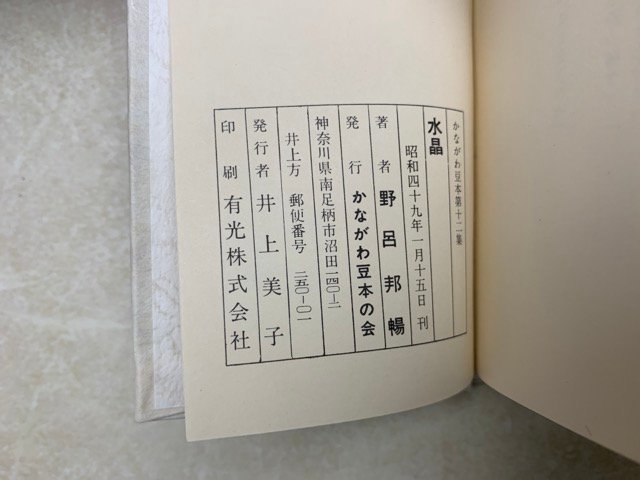 かながわ豆本第十二集
水晶
昭和四十九年一月十五日 刊
著者 野呂邦暢
発行 かながわ豆本の会
神奈川県南足柄市沼田一四〇-二
井上方 郵便番号 二五〇-〇一
発行者 井上美子
印刷 有光株式会社